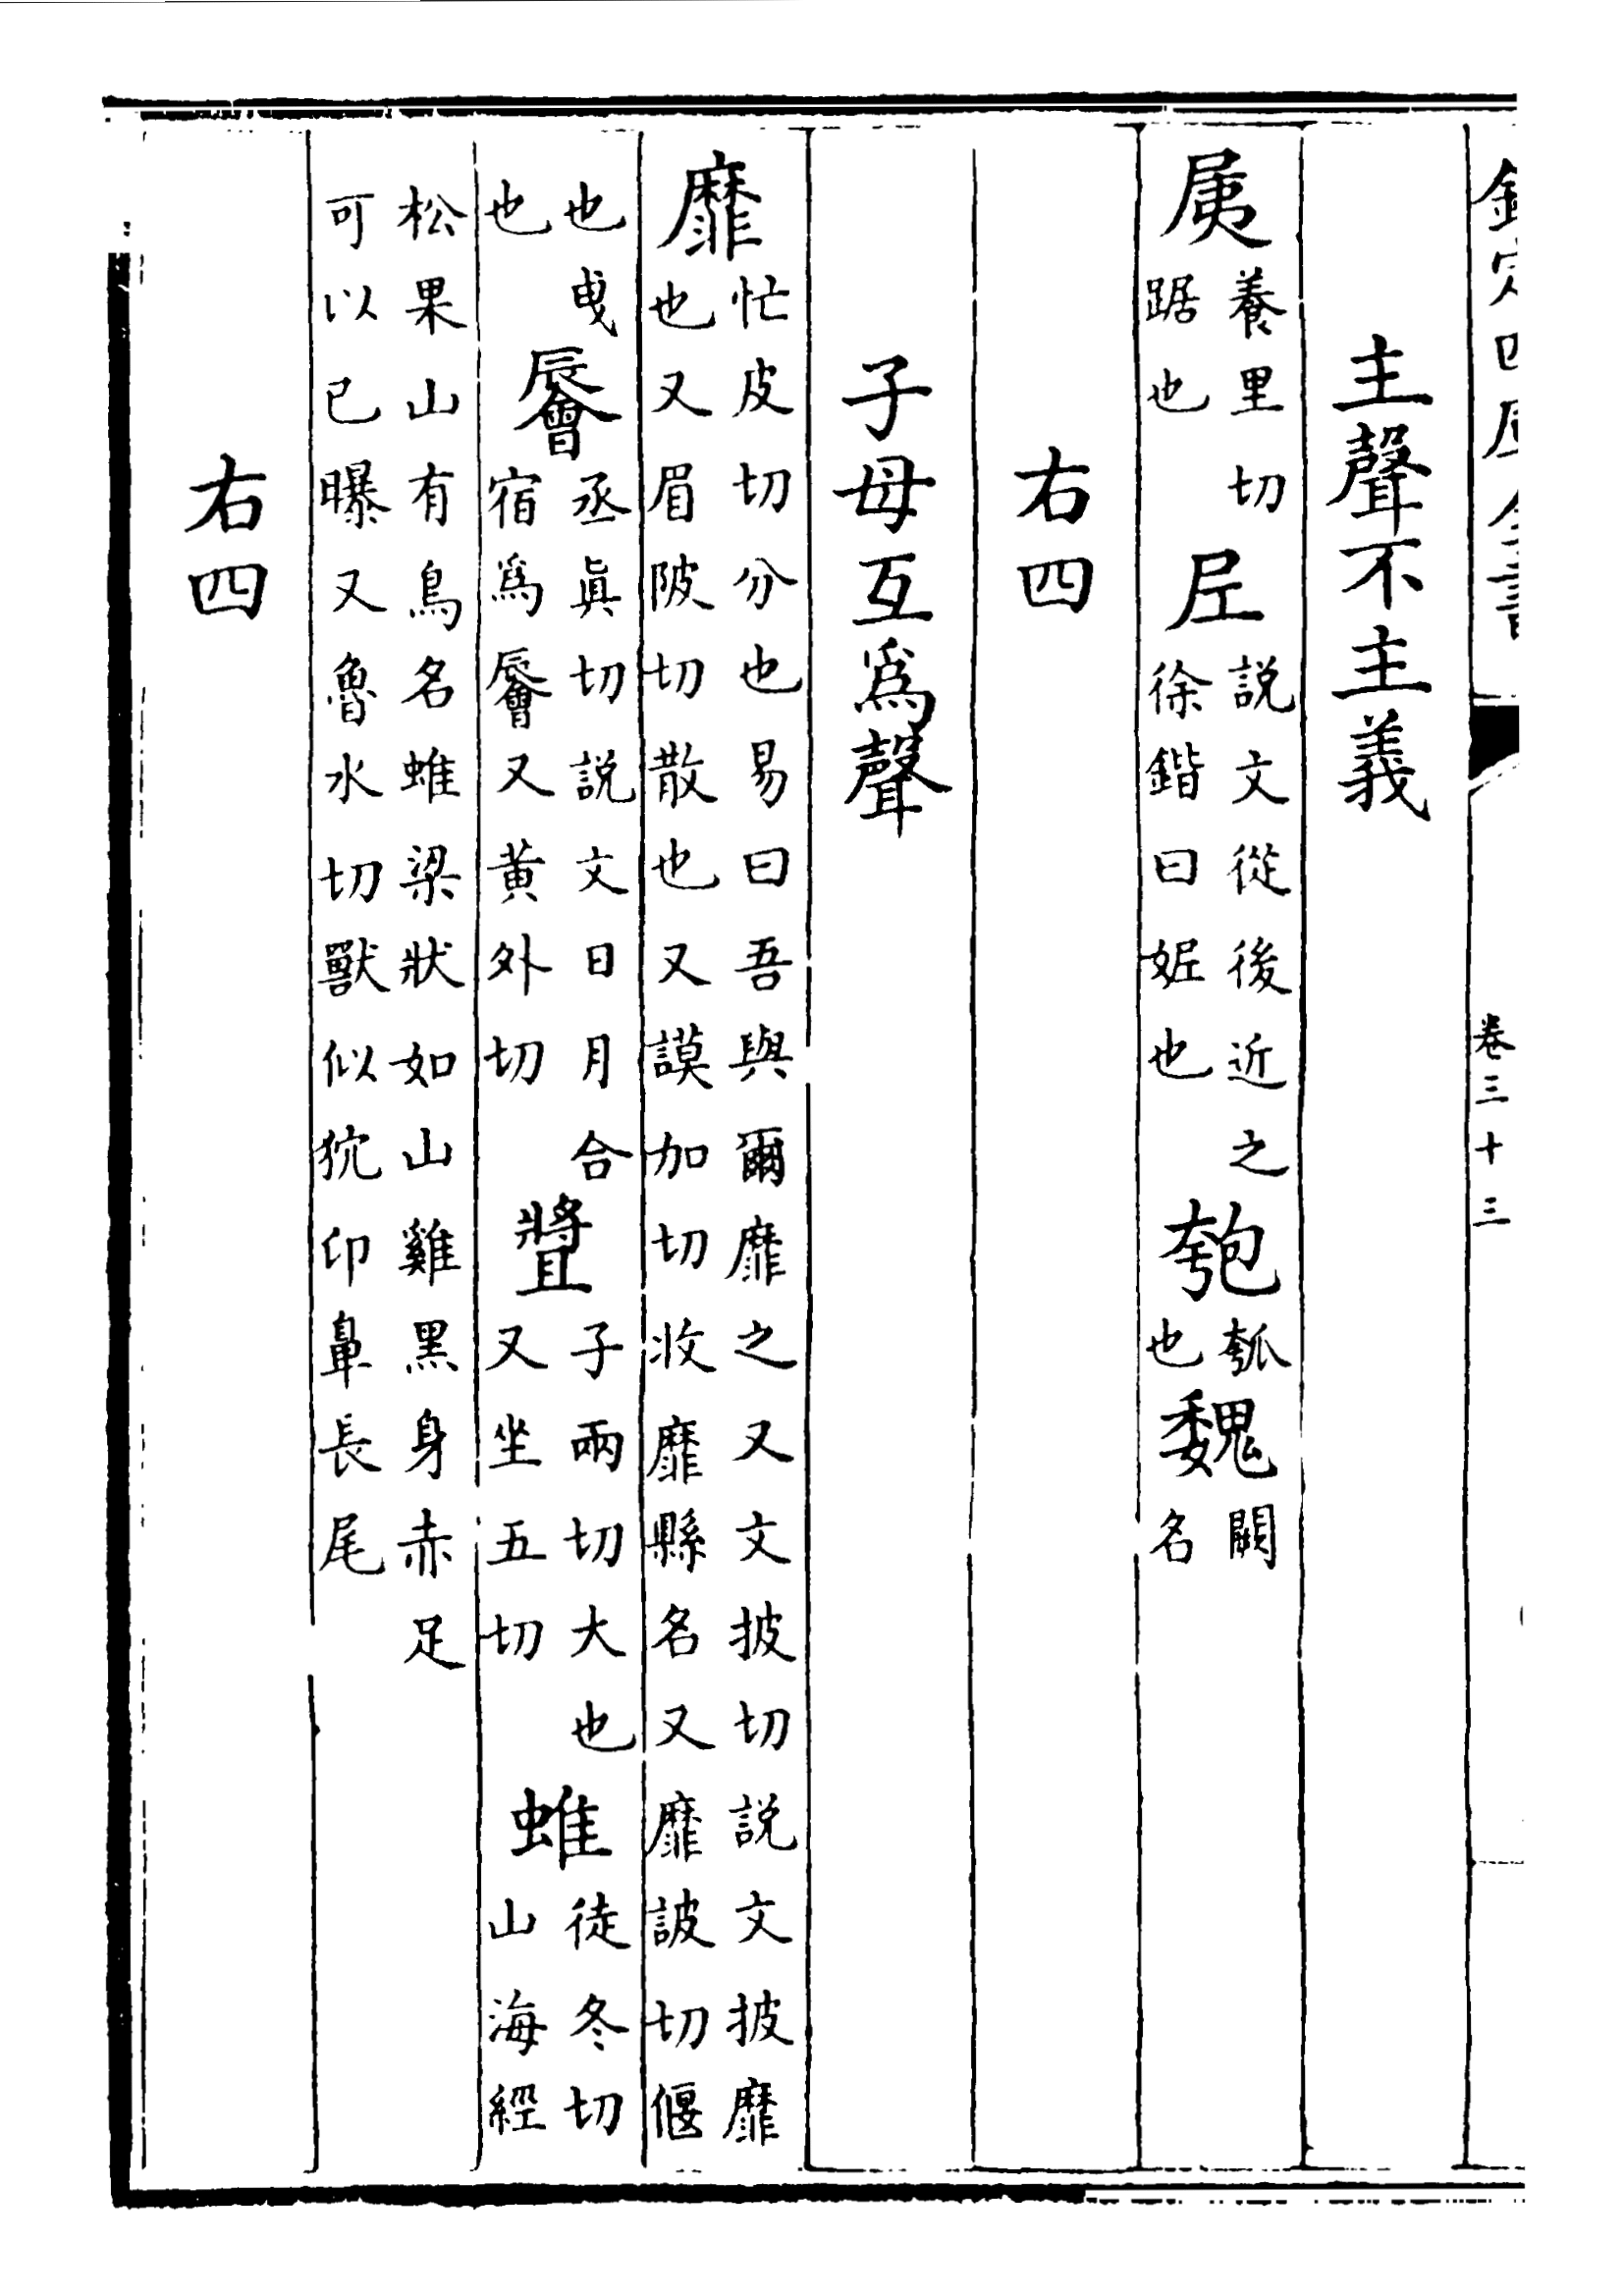 欽定四庫全書 卷三十三
主聲不主義
養里切踞也 尼 説文從後近之徐鍇曰妮也 匏 瓠也 魏 闕名
右四
子母互爲聲
靡 忙皮切分也易曰吾與爾靡之又文披切説文披靡也又眉陂切散也又謨加切收靡縣名又靡詖切偃
也曵也 丞眞切説文日月合宿爲又黄外切 子兩切大也又坐五切 蜼 徒冬切山海經
松果山有鳥名蜼梁狀如山雞黑身赤足可以已曝又魯水切獸似狖印鼻長尾
右四